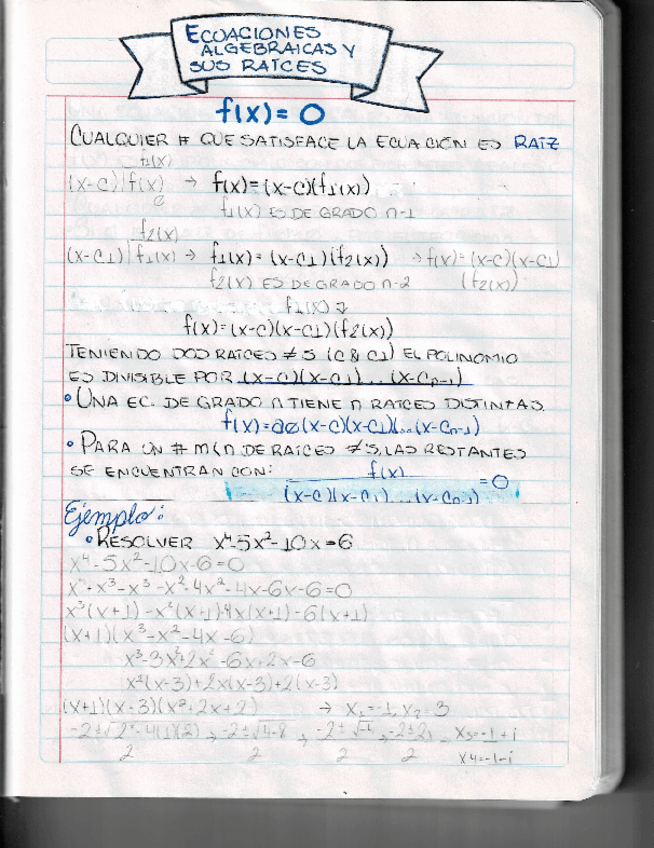 ECUACIONES
ALGEBRAICAS Y
SUS RAÍCES
f(x) = 0
CUALQUIER # QUE SATISFACE LA ECUACIÓN ES RAÍZ
f1(x)
(x-c)|f(x) → f(x)=(x-c)(f1(x))
f1(x) ES DE GRADO n-1
f2(x)
(x-c1)|f1(x) → f1(x)=(x-c1)(f2(x)) → f(x)=(x-c)(x-c1)
f2(x) ES DE GRADO n-2 (f2(x))
f1(x) ↓
f(x)=(x-c)(x-c1)(f2(x))
TENIENDO DOS RAÍCES ≠S (C & C1) EL POLINOMIO
ES DIVISIBLE POR (x-c)(x-c1)...(x-cn-1)
• UNA EC. DE GRADO n TIENE n RAICES DISTINTAS.
f(x)=a0(x-c)(x-c1)(...(x-cn-1)
• PARA UN # m<n DE RAICES ≠S, LAS RESTANTES
SE ENCUENTRAN CON: f(x)/(x-c)(x-c1)...(x-cn-1) = 0
Ejemplo:
• RESOLVER x⁴-5x²-10x=6
x⁴-5x²-10x-6=0
x⁴+x³-x³-x²-4x²-4x-6x-6=0
x³(x+1)-x²(x+1)-4x(x+1)-6(x+1)
(x+1)(x³-x²-4x-6)
x³-3x²+2x²-6x+2x-6
x²(x-3)+2x(x-3)+2(x-3)
(x+1)(x-3)(x²+2x+2) → x1=-1, x2=3
-2±√2²-4(1)(2)/2, -2±√4-8/2, -2±√-4/2, -2±2i/2 x3=-1+i
x4=-1-i